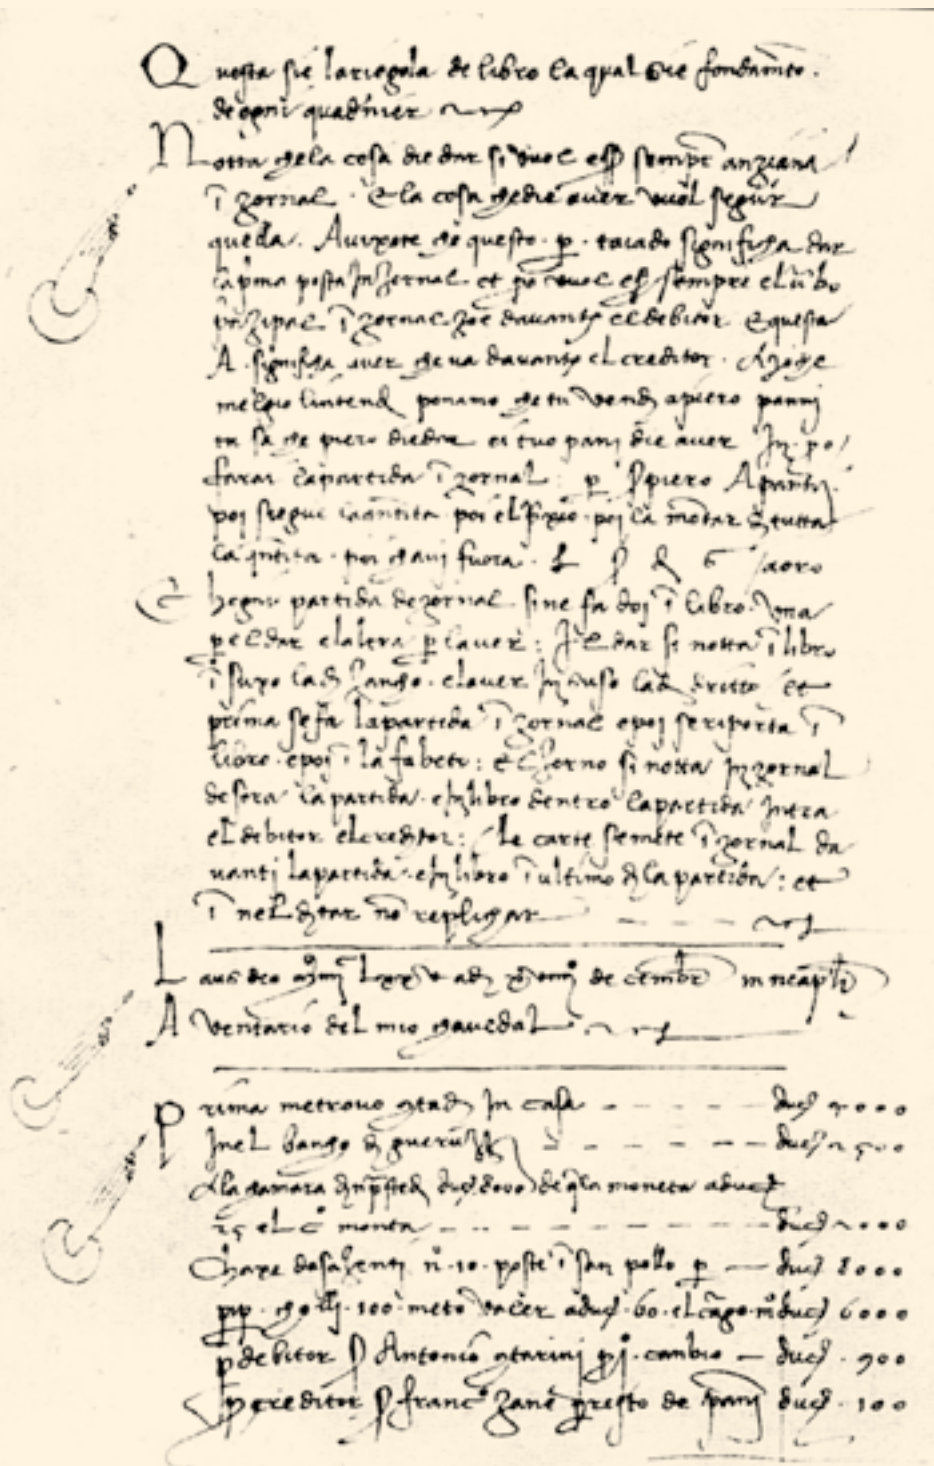 Questa sie la riegola de libro la qual sie fondamto.
de ogni quadnier
Notta che la cosa die dar si vuol esser sempre anziana
i zornal. E la cosa che die aver vuol seguir
quella. Avixote che questo. p. taiado significha dar
la pma posta in zernal et po vuol esser sempre el
prizipal i zornal zoe davanti el debitor. E questa
A. significha aver che va davanti el creditor. Azoche
melgio lintendi ponamo che tu vendi a piero panni
tu sa che piero die dar ei tuo pani die aver In po
farai la partida i zornal: p S piero A panni.
poi siegui la qntita poi el prexio. poi la montar E tutta
la qntita. poi chavi fuora. L S d G laoro
Chogni partida de zornal sine fa doi i libro. Una
p el dar e laltra p laver: El dar si notta i libro
i suxo la dj zancho. e laver in suso lad dritto et
prima se fa la partida i zornal e poi se riporta i
libro. e poi i lafabeto: e el zorno si notta in zornal
de sora la partida. e in libro dentro la partida intra
el debitor el creditor: le carte se mette i zornal da
vanti la partida. e in libro i ultimo dj la partida: et
i nel ditar no replichar
Laus deo adj de cembr in neapli
Aventario del mio chavedal
Prima me trovo ctadi In casa - - - - - duc
Inel bancho di - - - - - duc
Ala camara d'inpsted duc de qla moneta a duc
25 el co monta - - - - - duc 2000
Chaxe da sazenti no. 10. poste i san pollo p — duc 8000
pip. cholli. 100. meto valer a duc. 60. el cargo. mo duc 6000
p debitor S Antonio ctarini p. cambio — duc. 900
p creditor S franco zane p resto de pani duc. 100